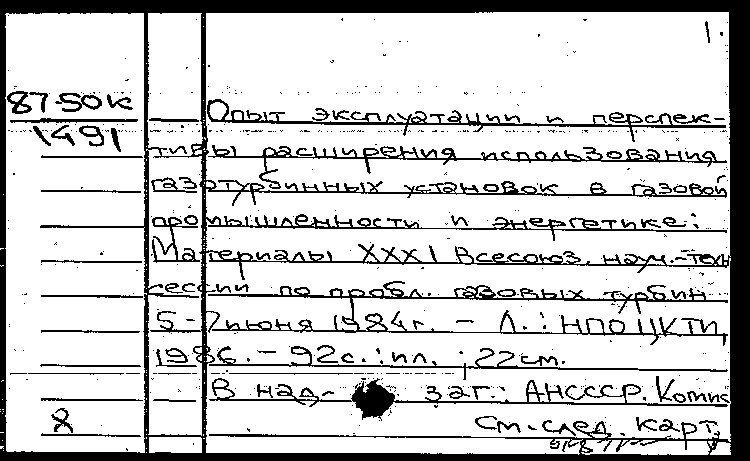 1.
87-50к
1491
Опыт эксплуатации и перспек-
тивы расширения использования
газотурбинных установок в газовой
промышленности и энергетике:
Материалы XXXI Всесоюз. науч.-техн
сессии по пробл. газовых турбин
5-7 июня 1984г. - Л.: НПО ЦКТИ,
1986. - 92с.: ил. ; 22см.
В над- заг.: АНСССР. Комис
См. след. карт.
8